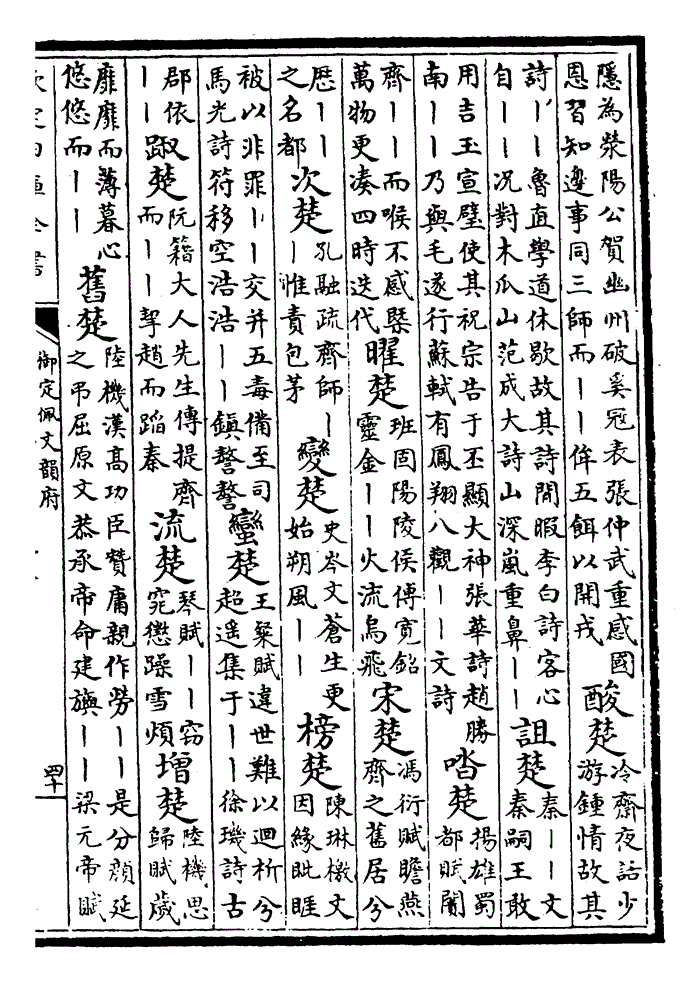 隱為滎陽公賀幽州破奚冦表張仲武重感國
恩習知邊事同三師而丨丨侔五餌以開戎
酸楚
冷齋夜話少
游鍾情故其
詩丨丨魯直學道休歇故其詩閒暇李白詩客心
自丨丨况對木瓜山范成大詩山深嵐重鼻丨丨
詛楚
秦丨丨文
秦嗣王敢
用吉玉宣璧使其祝宗告于丕顯大神張華詩趙勝
南丨丨乃與毛遂行蘇軾有鳳翔八觀丨丨文詩
喒楚
揚雄蜀
都賦闤
齊丨丨而喉不感槩
萬物更凑四時迭代
曜楚
班固陽陵侯傅寛銘
靈金丨丨火流烏飛
宋楚
馮衍賦瞻燕
齊之舊居兮
歴丨丨
之名都
次楚
孔融疏齊師丨
丨惟責包茅
變楚
史岑文蒼生更
始朔風丨丨
榜楚
陳琳檄文
因緣眦睚
被以非罪丨丨交并五毒備至司
馬光詩符移空浩浩丨丨鎮嗸嗸
蠻楚
王粲賦違世難以迴析兮
超遥集于丨丨徐璣詩古
郡依
丨丨
踧楚
阮籍大人先生傳提齊
而丨丨挈趙而蹈秦
流楚
琴賦丨丨窈
窕懲躁雪煩
增楚
陸機思
歸賦歲
靡靡而薄暮心
悠悠而丨丨
舊楚
陸機漢高功臣贊庸親作勞丨丨是分顔延
之弔屈原文恭承帝命建旟丨丨梁元帝賦
欽定四庫全書
御定佩文韻府
四十